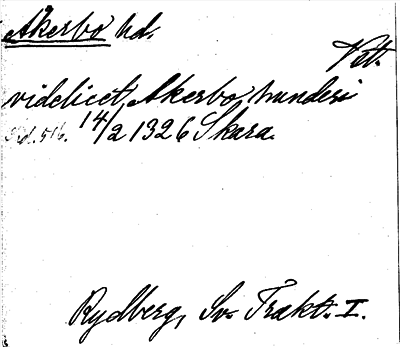 Åkerbo hd.
Vst.
videlicet Akerbo hunderi
14/2 1326 Skara.
Rydberg, Sv. Trakt. I.